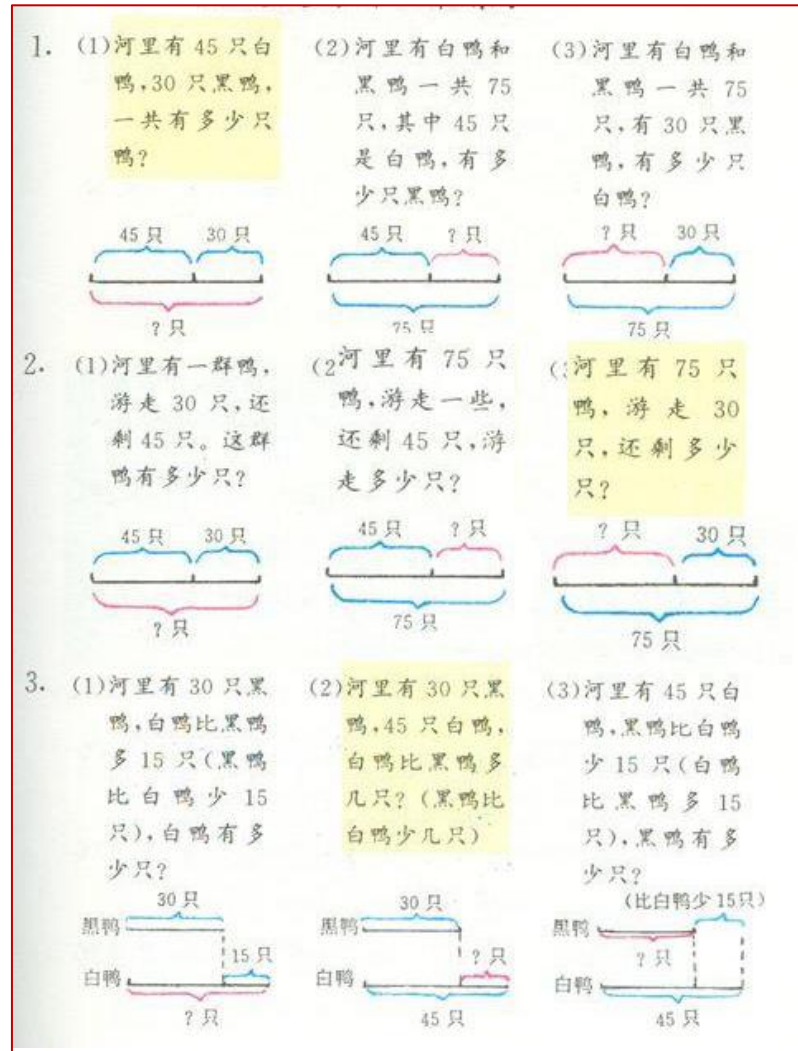 1. (1)河里有 45 只白
鸭,30 只黑鸭,
一共有多少只
鸭?
45 只 30 只
? 只
(2)河里有白鸭和
黑鸭一共 75
只,其中 45 只
是白鸭,有多
少只黑鸭?
45 只 ? 只
75 只
(3)河里有白鸭和
黑鸭一共 75
只,有 30 只黑
鸭,有多少只
白鸭?
? 只 30 只
75 只
2. (1)河里有一群鸭,
游走 30 只,还
剩 45 只。这群
鸭有多少只?
45 只 30 只
? 只
(2河里有 75 只
鸭,游走一些,
还剩 45 只,游
走多少只?
45 只 ? 只
75 只
(河里有 75 只
鸭,游走 30
只,还剩多少
只?
? 只 30 只
75 只
3. (1)河里有 30 只黑
鸭,白鸭比黑鸭
多 15 只(黑鸭
比白鸭少 15
只),白鸭有多
少只?
30 只
黑鸭
15 只
白鸭
? 只
(2)河里有 30 只黑
鸭,45 只白鸭,
白鸭比黑鸭多
几只?(黑鸭比
白鸭少几只)
30 只
黑鸭
? 只
白鸭
45 只
(3)河里有 45 只白
鸭,黑鸭比白鸭
少 15 只(白鸭
比黑鸭多 15
只),黑鸭有多
少只?
(比白鸭少 15只)
黑鸭
? 只
白鸭
45 只